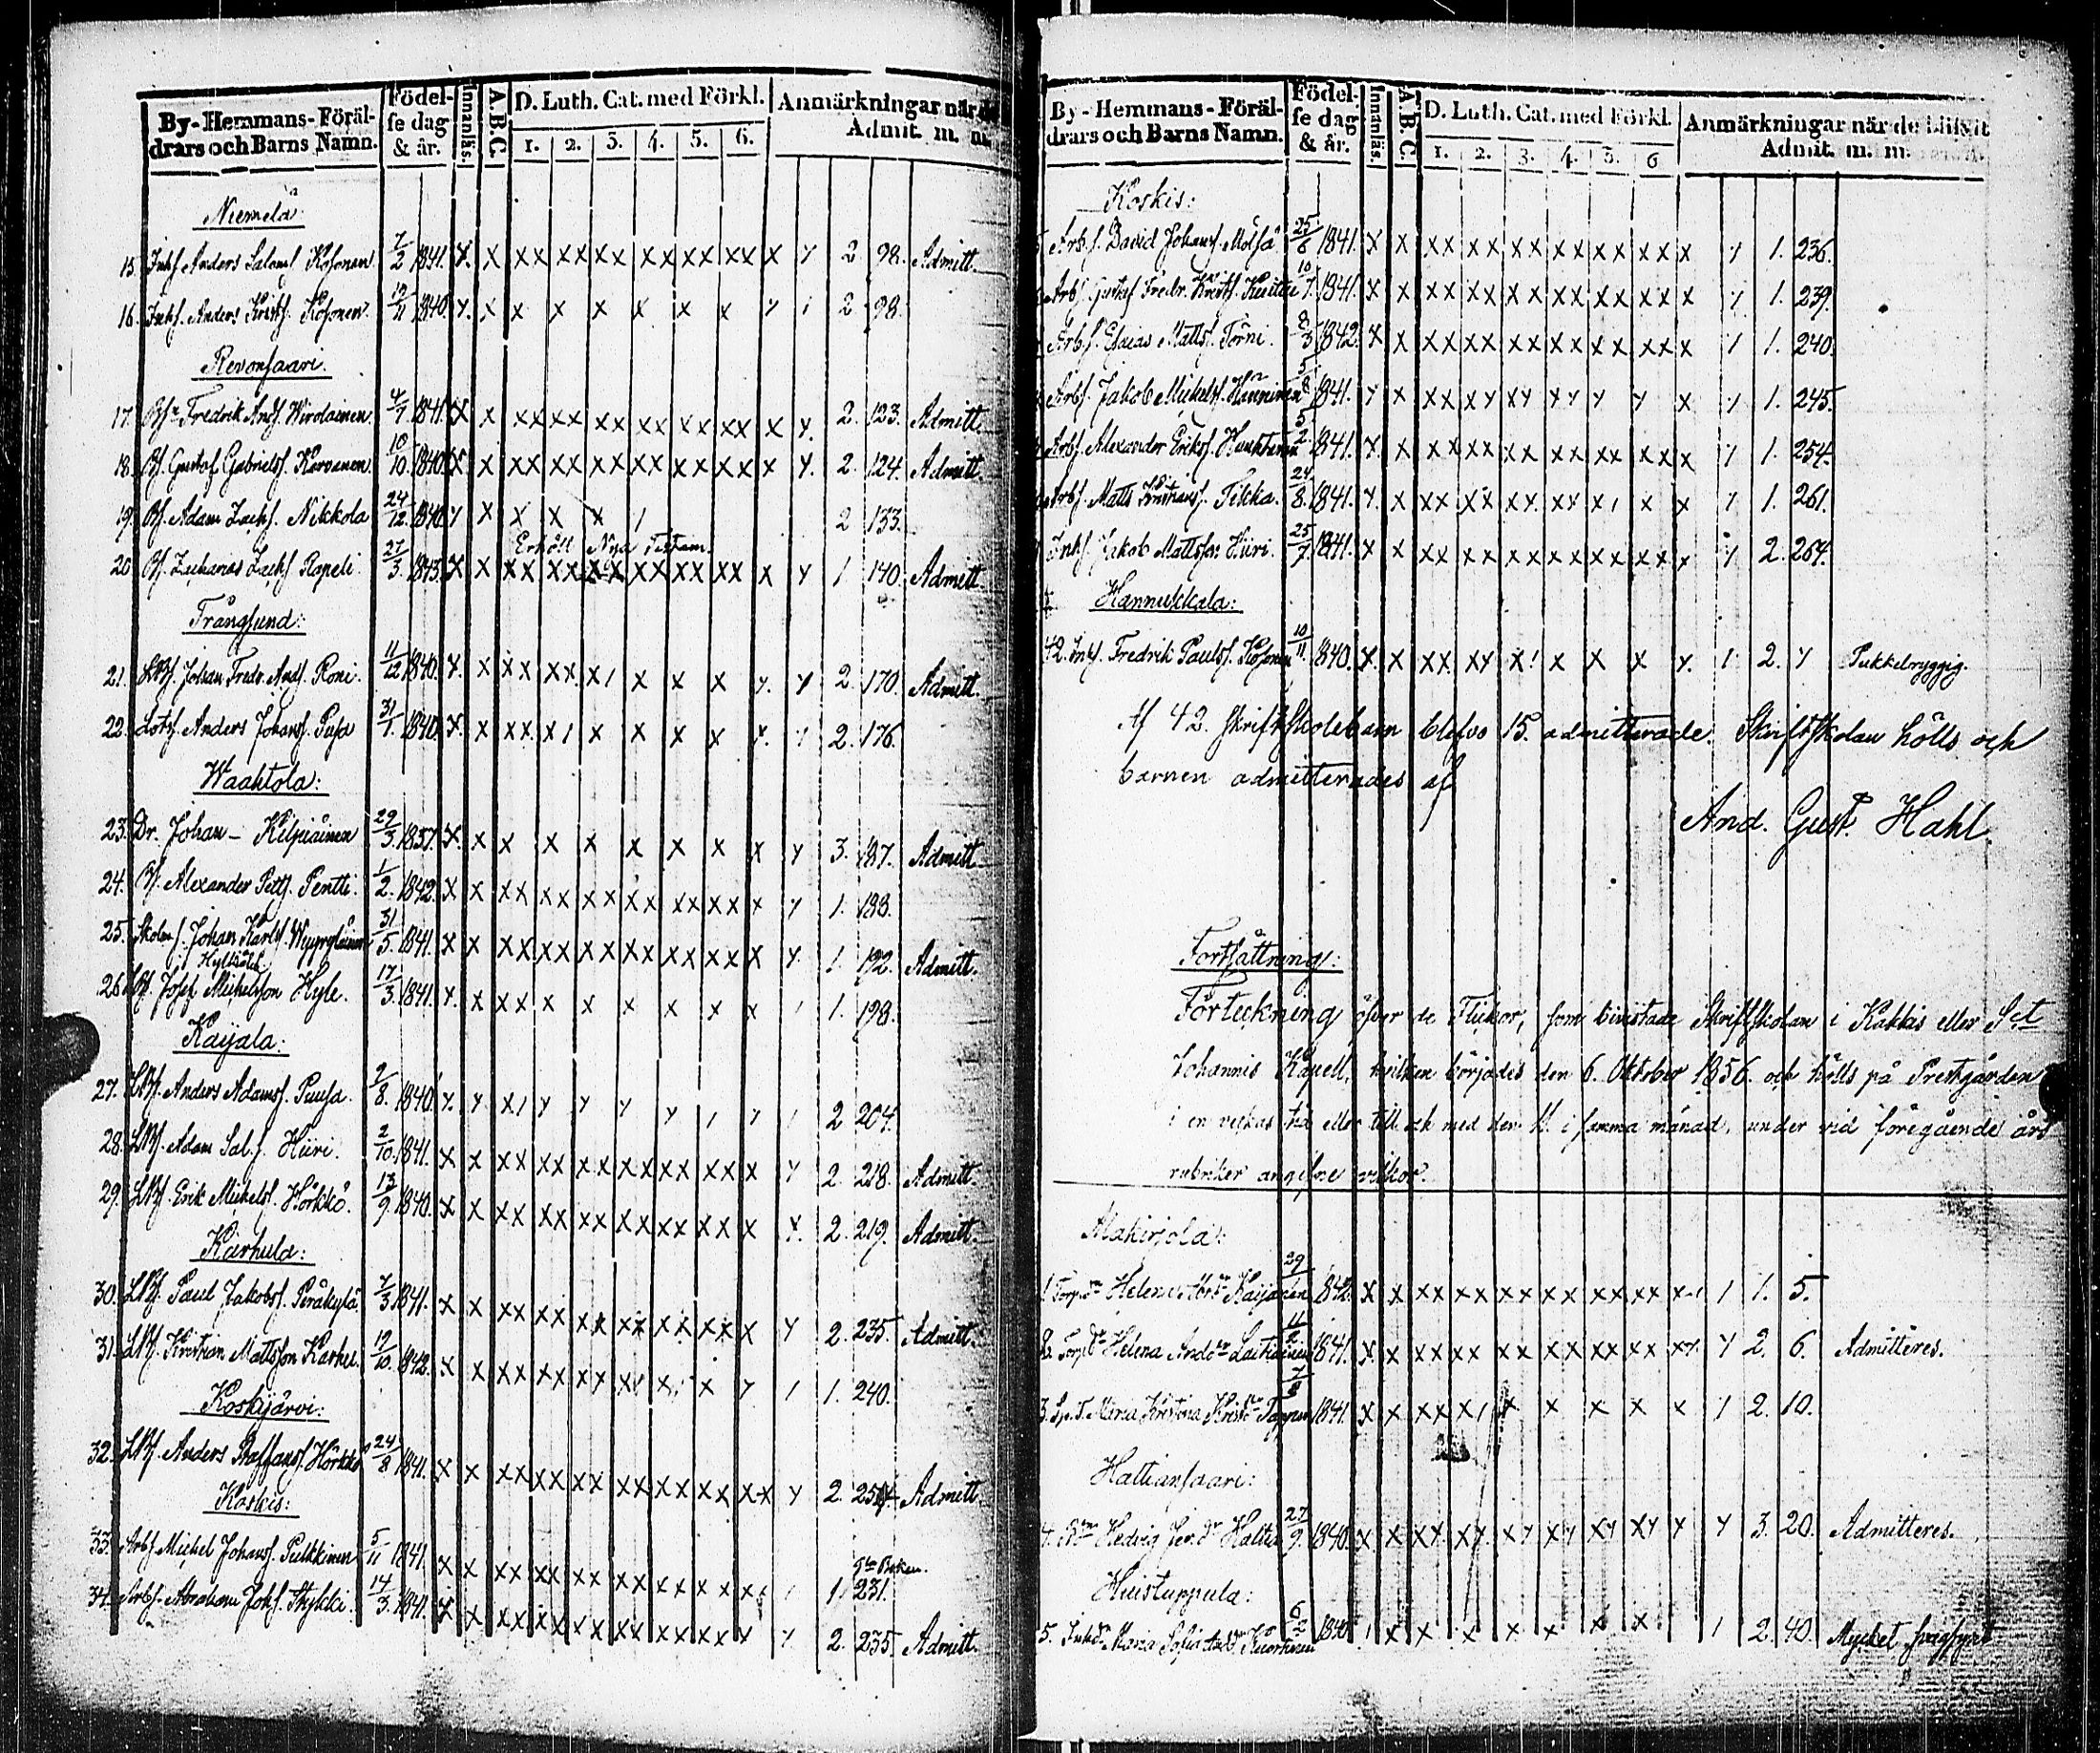 By-Hemmans-Föräl-
drars och Barns Namn.
Födel-
se dag
& år.
Innanläs.
A.B.C.
D. Luth. Cat. med Förkl.
1. 2. 3. 4. 5. 6.
Anmärkningar när de
Admit. m. m.
Niemelä:
15. Inhs. Anders Saloms. Kosonen 7/2 1841. x x xx xx xx xx xx xx x y 2 98. Admitt.
16. Inhs. Anders Krists. Kosonen 1840. x x x x x x x x y 1 2 98.
Revonsaari.
17. Fredrik Ands. Wirolainen 4/7 1841. x x xx xx xx xx xx xx x y. 2. 123. Admitt.
18. Bs. Gustaf Gabriels. Karvanen 10/10 1840. x x xx xx xx xx xx xx x y. 2. 124. Admitt.
19. Bs. Adam Zachs. Nikkola 24/12. 1840. y x x x x 1 2 133.
Erhöll Nya Testam.
20. Bs. Zacharias Zachs. Rapeli 27/3. 1843. x x xx xx xx xx xx xx x y 1. 140. Admitt.
Trångsund:
21. Johan Fredr. Ands. Roni. 11/12 1840. x x xx xx x1 x x x y. y 2. 170. Admitt.
22. Lots. Anders Johans. Pusa 31/1. 1840. x. x xx x1 x x x x y. y 2. 176.
Waahtola:
23. Dr. Johan - Kilpiäinen 29/3. 1837. x x x x x x x x x y 3. 187. Admitt.
24. Bs. Alexander Petts. Pentti. 1/2. 1842. x x xx xx xx xx xx xx x y 1. 188.
25. Johan Karls. 31/5. 1841. x x xx xx xx xx xx xx x y. 1. 192. Admitt.
26. Josef Michelsson Hyle. 17/3. 1841. x. x xx x x x x x x 1 1. 198.
Kaijala:
27. Anders Adams. Puusa. 2/8. 1840. y. y x1 y y y y 1 y 1 2 204.
28. Adam Sal.s. Hiiri. 2/10. 1841. x x xx xx xx xx xx xx x y 2. 218. Admitt.
29. Erik Michels. Hörkkö. 13/9. 1840. x x xx xx xx xx xx xx x x. 2. 219. Admitt.
Karhula:
30. Paul Jakobs. Peräkylä 7/3 1841. x x xx xx xx xx xx xx x y 2. 235. Admitt.
31. Kristian Mattsson Karhu. 1842. x x xx xx xy x x y 1 1. 240.
Koskijärvi:
32. Anders Staffans. Hörkkö 24/8 1841. x x xx xx xx xx xx xx x-x y 2. Admitt.
Kaskis:
33. Arbs. Michel Johans. Pulkkinen 5/11 1841. x x xx xx xx xx xx xx 1 1. 231.
34. Arbs. Abraham Johs. 14/3. 1841. x x xx xx xx xx xx xx y y. 2. 235. Admitt.
By-Hemmans-Föräl-
drars och Barns Namn.
Födel-
se dag
& år.
Innanläs.
A.B.C.
D. Luth. Cat. med Förkl.
1. 2. 3. 4. 5. 6
Anmärkningar när de blifvit
Admit. m. m.
Koskis:
Arb.s. David Johans. Mölsä 25/6 1841. x x xx xx xx xx xx xx x y 1. 236.
Arbs. Gustaf Fredr. Krists. 10/7. 1841. x x xx xx xx xx xx xx x y 1. 239.
Arb.s. Esaias Matts. Törni. 8/3 1842. x x xx xx xx xx xx xx x 1 1. 240.
Arbs. Jakob Michels. Hänninen 5/8 1841. y x xx xy xy xy y y x y 1. 245.
Arbs. Alexander Eriks. 5/2. 1841. x. x xx xx xx xx xx xx x y 1. 254.
Arbs. Matts Tikka. 24/8. 1841. x. x xx xx xx xx x1 x x y 1. 261.
Inhs. Jakob Mattsson Hiiri. 25/7. 1841. x x xx xx xx xx xx xx x y 2. 264.
Hannukkala:
42. Inhs. Fredrik Pauls. Kosonen 10/11. 1840. x. x xx. xy x! x x x y. 1. 2. y Pukkelryggig.
Af 42. skriftskolebarn blefvo 15. admitterade. Skriftskolan hölls och
barnen admitterades af
And. Gust. Hahl.
Fortsättning:
Förteckning öfver de Flickor, som bivistade Skriftskolan i Kakkis eller Sct
Johannis Kapell, hvilken börjades den 6. Oktober 1856. och hölls på Prestgården
i en veckas tid eller till och med den 11. i samma månad, under vid föregående års
rubriker angifne vilkor.
Makirjola:
1. Helena 29/ 1842. x x xx xx xx xx xx xx x-1 1 1. 5.
2. Helena 11/2. 1841. x x xx xx xx xx xx xx xy. y 2. 6. Admitteres.
3. Maria Kristina 7/8 1841. x x xx x1 x x x x x 1 2. 10.
Hattiansaari:
4. Hedvig 27/9. 1840. x x xy. xy. xy xy xy xy y y 3. 20. Admitteres.
Huistuppula:
5. Maria Sofia 6/2 1840. 1 x x x x x x x 1 2. 40. Mycket